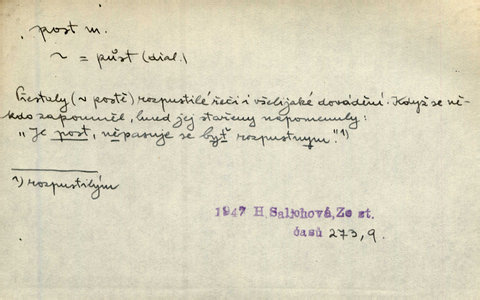 post m.
~ = půst (dial.)
Přestaly (v postě) rozpustilé řeči i všelijaké dovádění. Když se ně-
kdo zapomněl, hned jej stařeny napomenuly:
"Je post, něpasuje se byť rozpustnym."¹)
¹) rozpustilým
1947 H. Salichová, Ze st.
časů 273, 9.